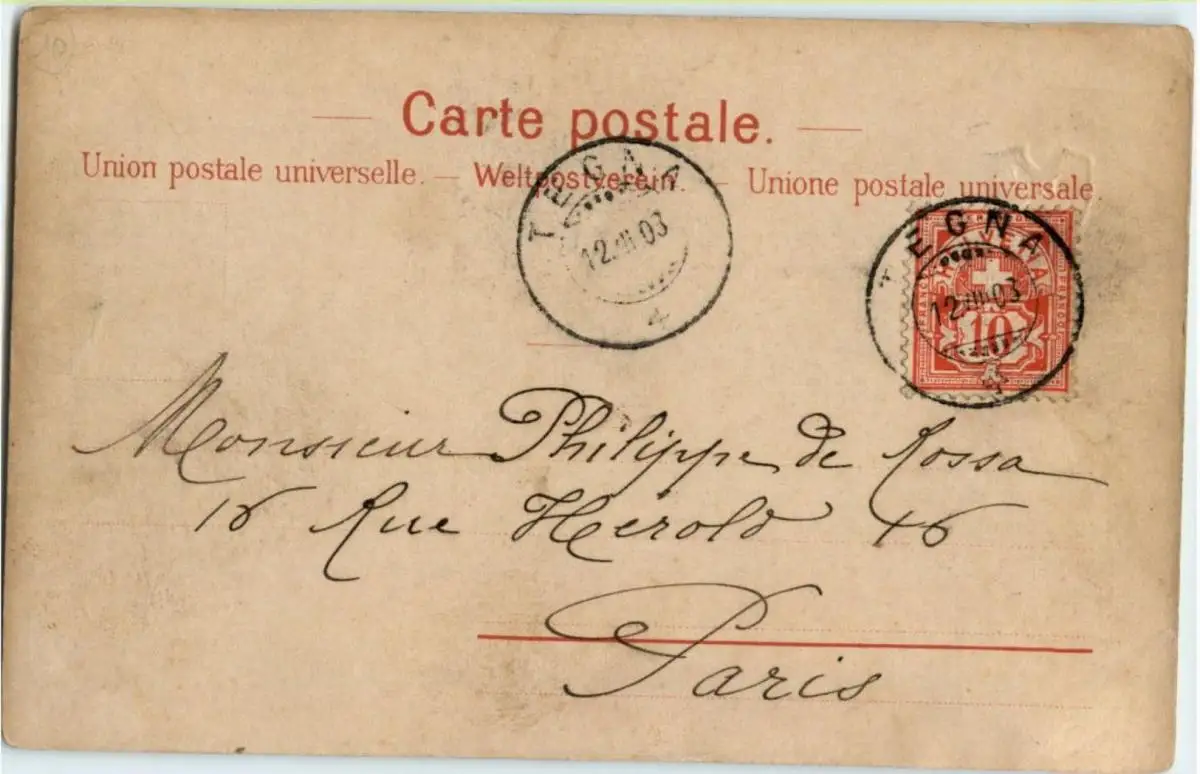 10
Carte postale.
Union postale universelle. — Weltpostverein. — Unione postale universale
TEGNA
12.III.03
TEGNA
12.III.03
HELVETIA
FRANCO
10
Monsieur Philippe de Rossa
16 Rue Herold 16
Paris